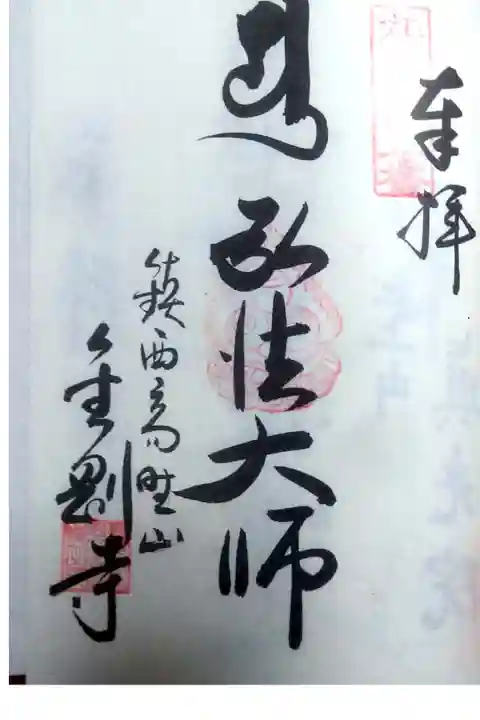 奉拝
弘法大師
鎮西高野山
金剛寺